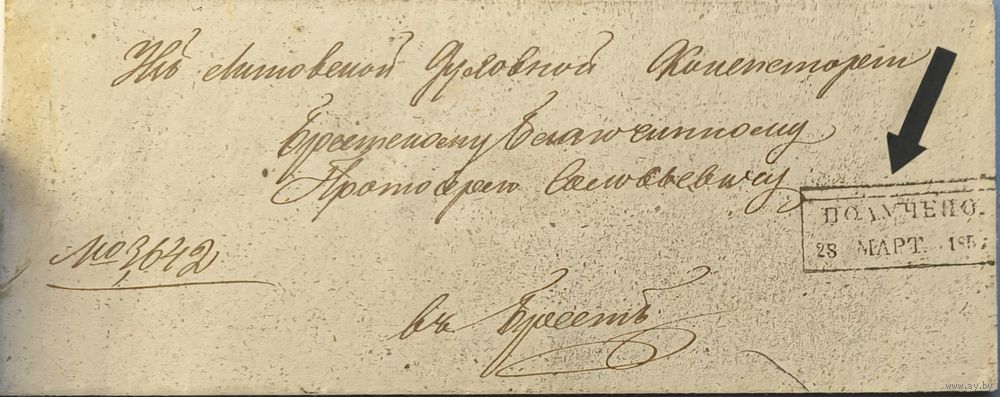 Изъ Литовской Духовной Консисторіи
Брестскому Благочинному
Протоіерею Соловьевичу
ПОЛУЧЕНО.
28 МАРТ. 185
№ 3,642
въ Брестъ
www.ay.by